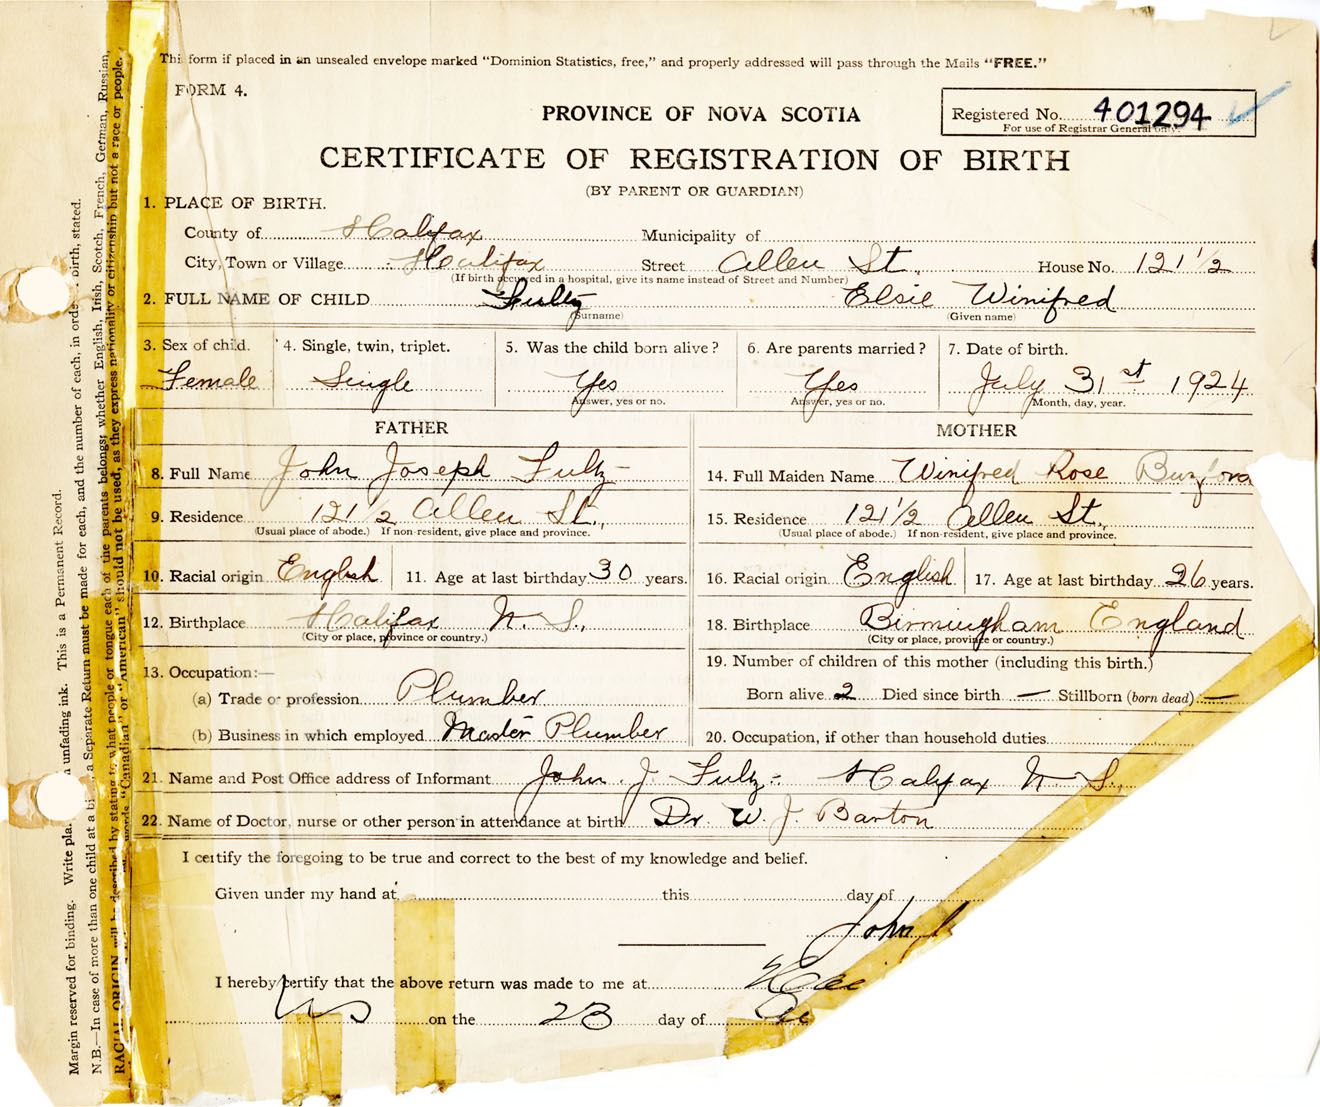 This form if placed in an unsealed envelope marked "Dominion Statistics, free," and properly addressed will pass through the Mails "FREE."
FORM 4.
PROVINCE OF NOVA SCOTIA
Registered No. 401294
For use of Registrar General only.
CERTIFICATE OF REGISTRATION OF BIRTH
(BY PARENT OR GUARDIAN)
1. PLACE OF BIRTH.
County of Halifax Municipality of
City, Town or Village Halifax Street Allen St. House No. 121 1/2
(If birth occurred in a hospital, give its name instead of Street and Number)
2. FULL NAME OF CHILD Fultz Elsie Winifred
(Surname) (Given name)
3. Sex of child. 4. Single, twin, triplet. 5. Was the child born alive? 6. Are parents married? 7. Date of birth.
Female Single Yes Yes July 31st 1924
Answer, yes or no. Answer, yes or no. Month, day, year.
FATHER MOTHER
8. Full Name John Joseph Fultz 14. Full Maiden Name Winifred Rose
9. Residence 121 1/2 Allen St., 15. Residence 121 1/2 Allen St.,
(Usual place of abode.) If non-resident, give place and province. (Usual place of abode.) If non-resident, give place and province.
10. Racial origin English 11. Age at last birthday 30 years. 16. Racial origin English 17. Age at last birthday 26 years.
12. Birthplace Halifax N. S., 18. Birthplace Birmingham England
(City or place, province or country.) (City or place, province or country.)
13. Occupation:— 19. Number of children of this mother (including this birth.)
(a) Trade or profession Plumber Born alive 2 Died since birth — Stillborn (born dead) —
(b) Business in which employed Master Plumber 20. Occupation, if other than household duties
21. Name and Post Office address of Informant John J. Fultz - Halifax N. S.,
22. Name of Doctor, nurse or other person in attendance at birth Dr. W. J. Barton
I certify the foregoing to be true and correct to the best of my knowledge and belief.
Given under my hand at this day of
John
I hereby certify that the above return was made to me at
on the 23 day of
Margin reserved for binding. Write unfading ink. This is a Permanent Record.
N.B.—In case of more than one child at a a Separate Return must be made for each, and the number of each, in order birth, stated.
RACIAL ORIGIN will be described by stating to what people or tongue each of the parents belongs; whether English, Irish, Scotch, French, German, Russian,
words "Canadian" or "American" should not be used, as they express nationality or citizenship but not a race or people.